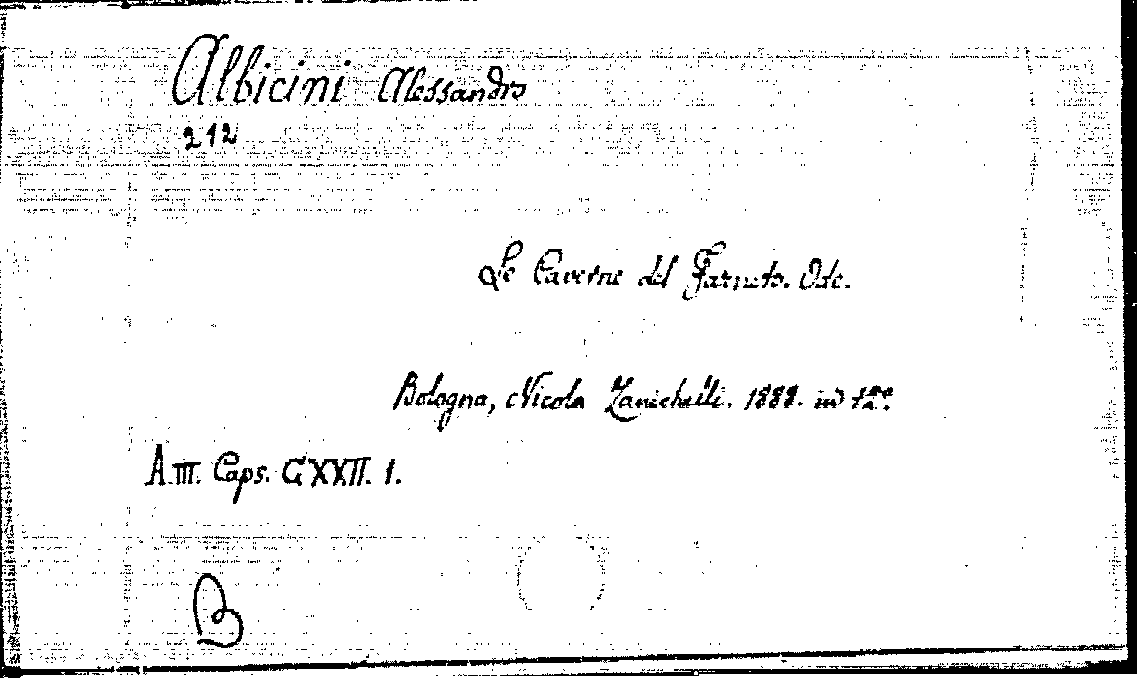 Albicini Alessandro
212
Le Caverne del Farneto. Ode.
Bologna, Nicola Zanichelli. 1882. in 12.º
A.III. Caps. CXXII. 1.
B